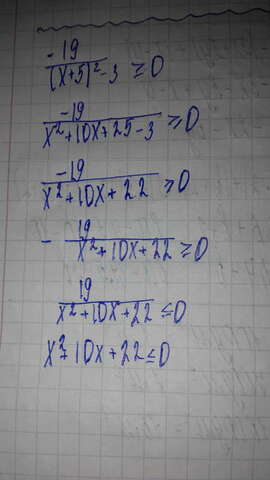 -19/((x+5)²-3) ≥ 0
-19/(x²+10x+25-3) ≥ 0
-19/(x²+10x+22) ≥ 0
- 19/(x²+10x+22) ≥ 0
19/(x²+10x+22) ≤ 0
x²+10x+22 ≤ 0